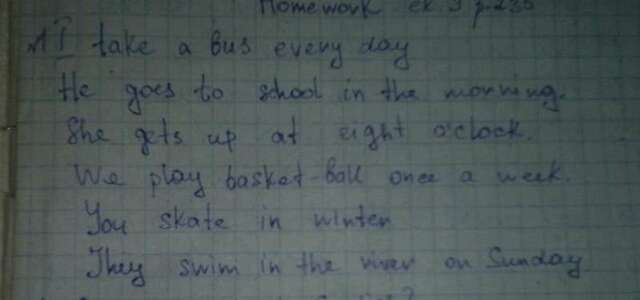 Homework ex 9 p.235
1 I take a bus every day
He goes to school in the morning.
She gets up at eight o'clock.
We play basket-ball once a week.
You skate in winter
They swim in the river on Sunday